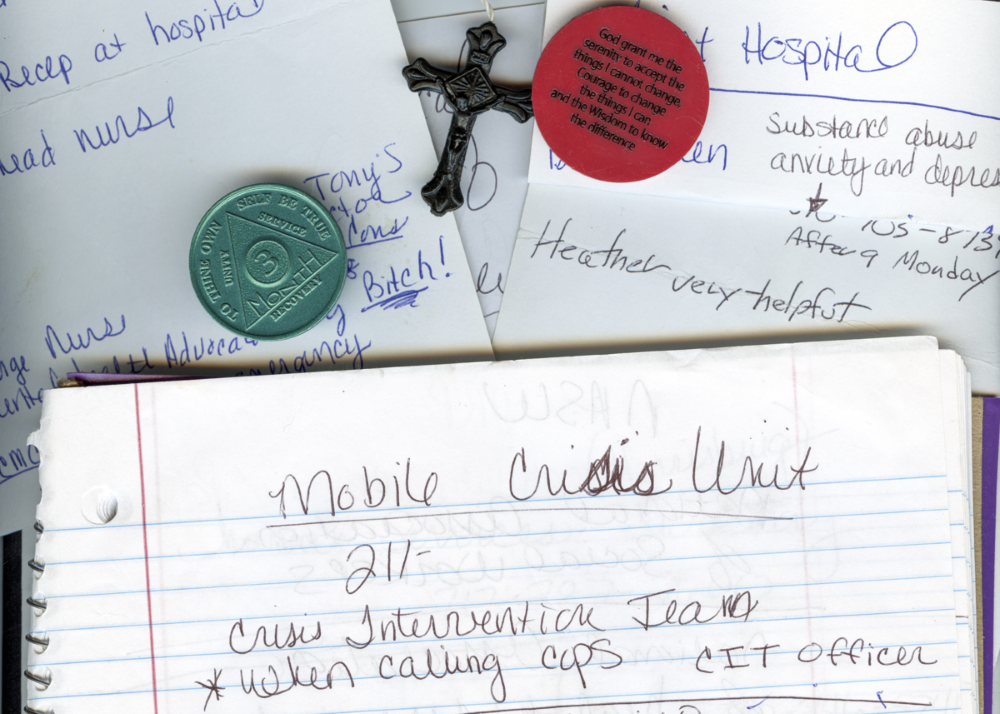 Recep at hospital
head nurse
Tony's
Cons
Bitch!
Nurse
Health Advoca
TO THINE OWN SELF BE TRUE
UNITY
SERVICE
RECOVERY
3
MONTH
God grant me the
serenity to accept the
things I cannot change.
Courage to change
the things I can.
and the Wisdom to know
the difference
it Hospital
Substance abuse
anviety and depres
After 9 Monday
Heather very helpful
Mobile Crisis Unit
211-
Crisis Intervention Team
* When calling cops CIT Officer